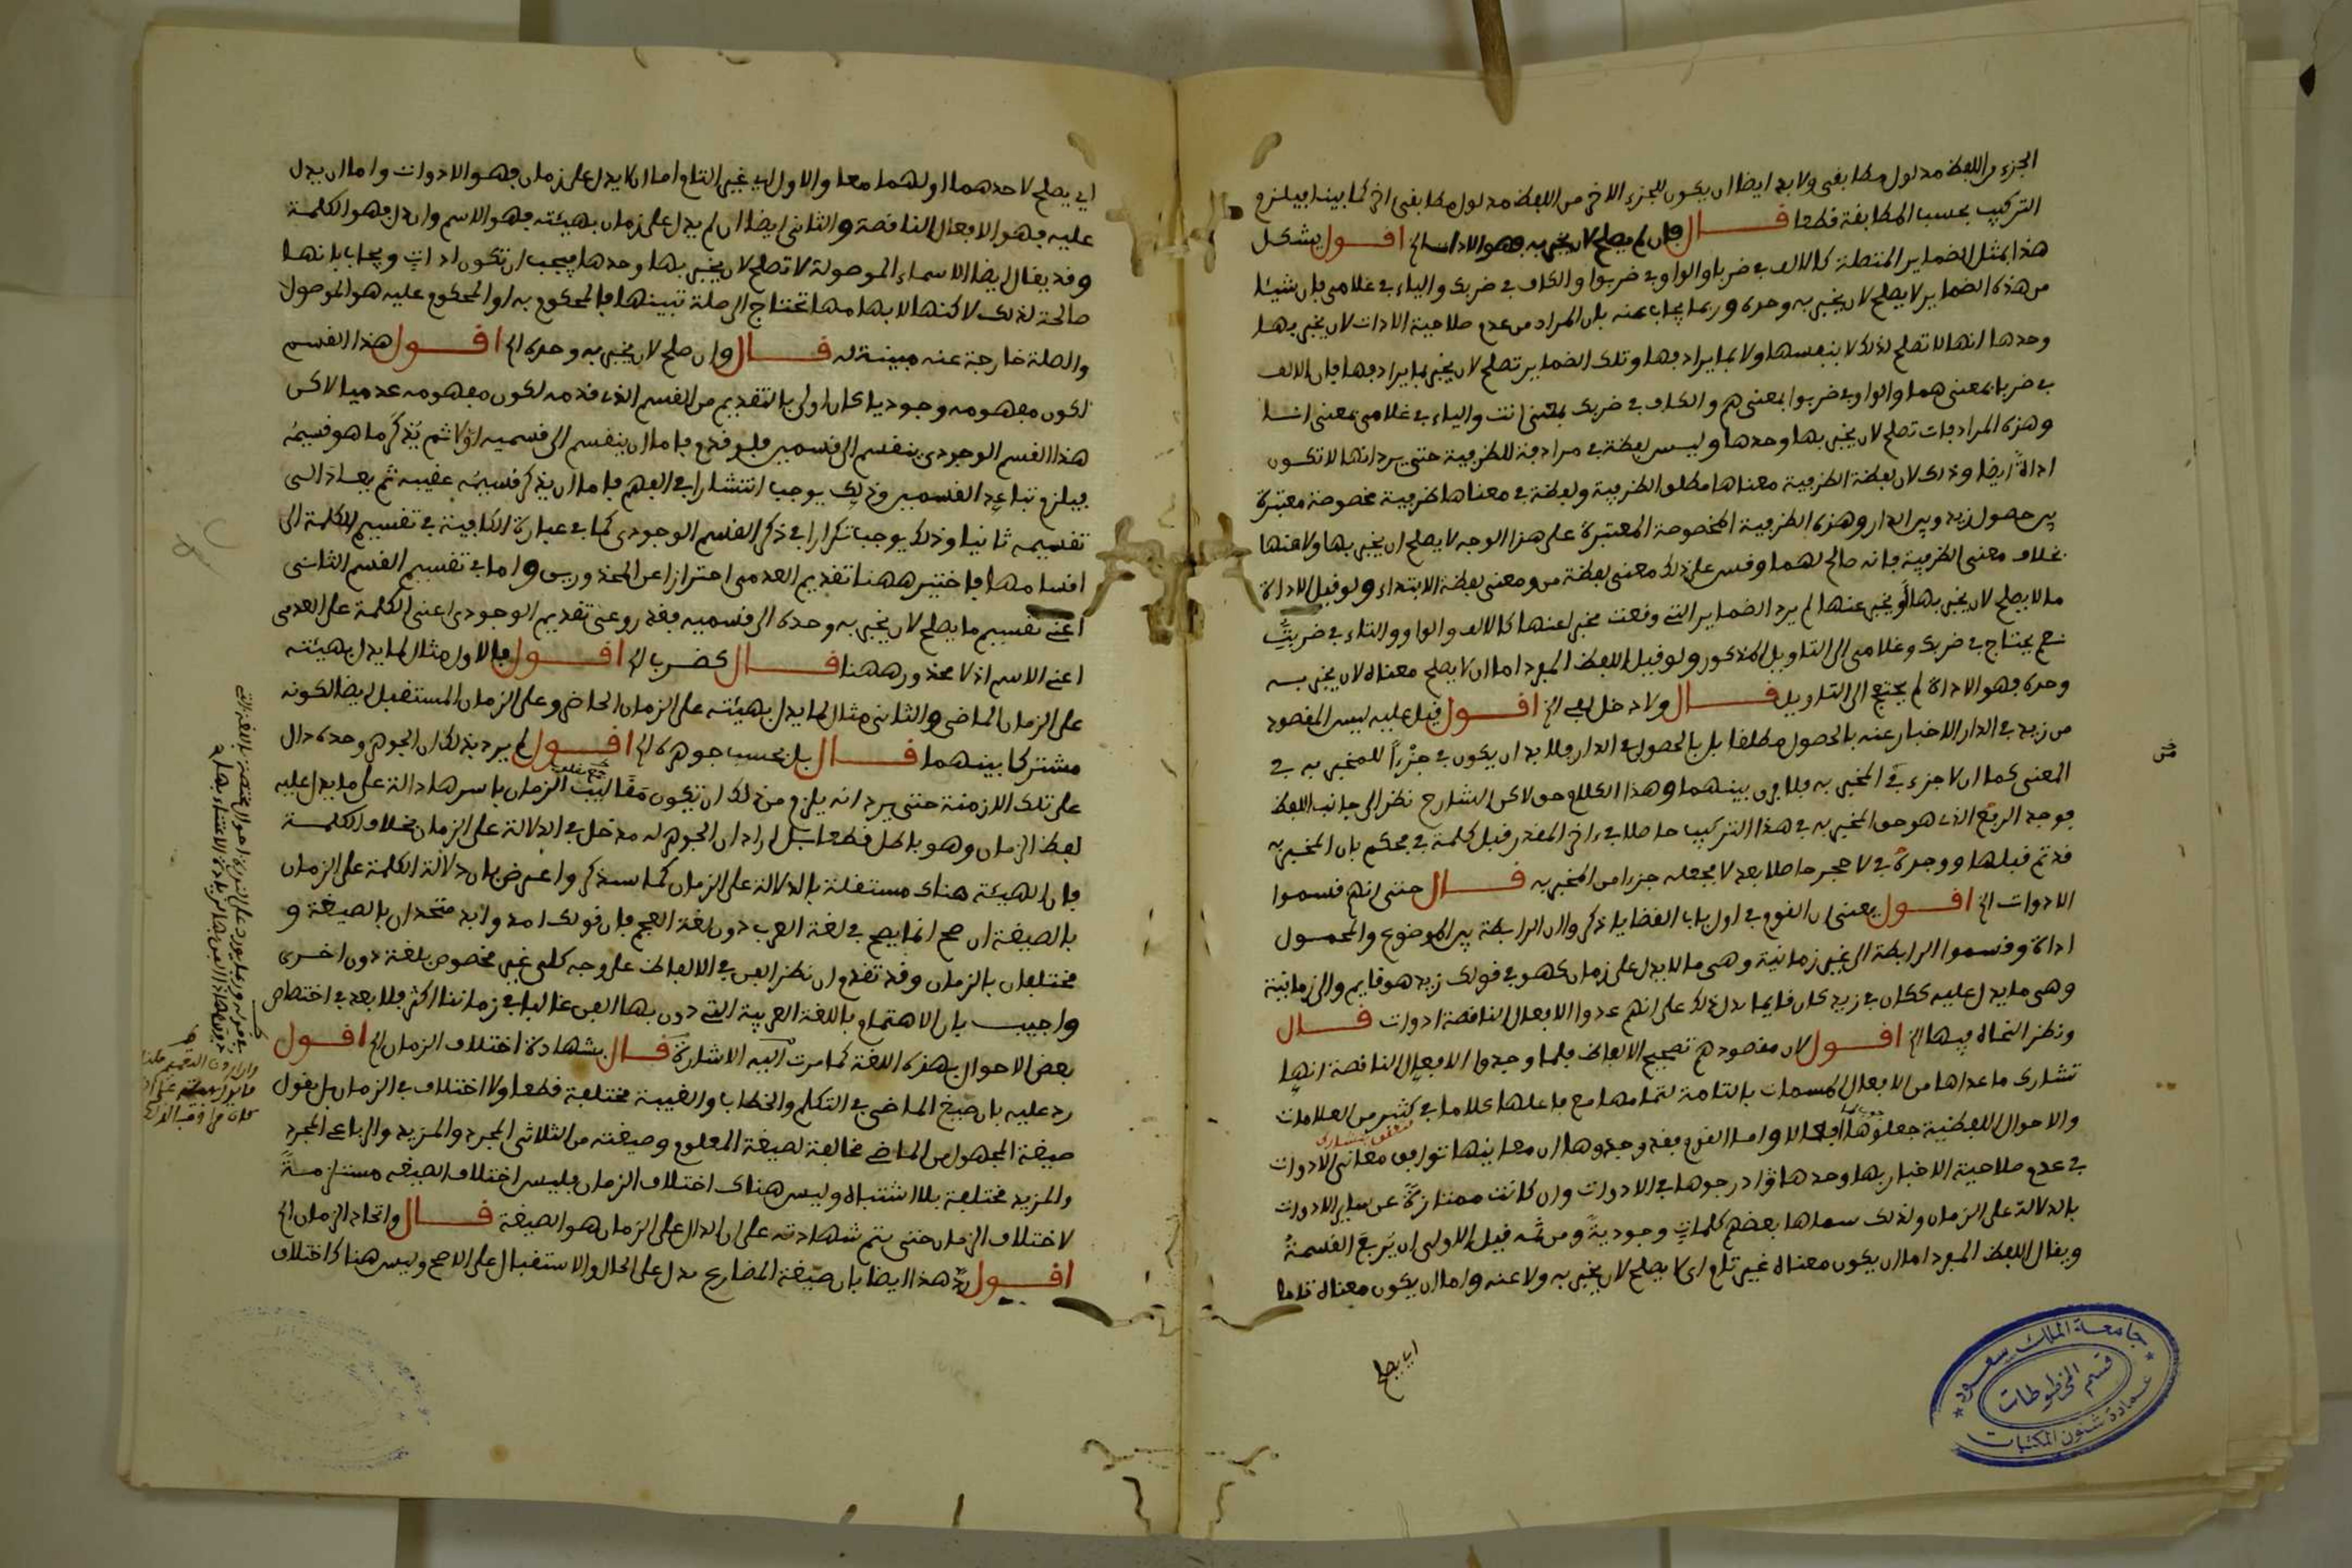 الجزء من اللفظ مدلول مطابقي ولا بد ايضا ان يكون للجزء الاخر من اللفظ مدلول مطابقي اخر كما بينا فيلزم
التركيب بحسب المطابقة قطعا قال فان لم يصلح لان يخبر به فهو الادات الخ اقول يشكل
هذا بمثل الضماير المتصلة كالالف في ضربا والواو في ضربوا والكاف في ضربك والياء في غلامي فان شيئا
من هذه الضماير لا يصلح لان يخبر به وحده وربما يجاب عنه بان المراد من عدم صلاحية الادات لان يخبر بها
وحدها انها لا تصلح لذلك لا بنفسها ولا بما يرادفها وتلك الضماير تصلح لان يخبر بما يرادفها فان الالف
في ضربا بمعنى هما والواو في ضربوا بمعنى هم والكاف في ضربك بمعنى انت والياء في غلامي بمعنى انا
وهذه المرادفات تصلح لان يخبر بها وحدها وليس لفظة في مرادفة للظرفية حتى يرد انها لا تكون
اداة ايضا وذلك لان لفظة الظرفية معناها مطلق الظرفية ولفظة في معناها ظرفية مخصوصة معتبرة
بين حصول زيد وبين الدار وهذه الظرفية المخصوصة المعتبرة على هذا الوجه لا يصلح ان يخبر بها ولا عنها
بخلاف معنى الظرفية فانه صالح لهما وقس على ذلك معنى لفظة من ومعنى لفظة الابتداء ولو قيل الاداة
ما لا يصلح لان يخبر بها أو يخبر عنها لم يرد الضماير التي وقعت مخبرا عنها كالالف والواو والتاء في ضربت
نعم يحتاج في ضربك وغلامي الى التاويل المذكور ولو قيل اللفظ المفرد اما ان لا يصلح معناه لان يخبر به
وحده فهو الاداة لم يحتج الى التاويل قال ولا دخل الخ اقول قيل عليه ليس المقصود
من زيد في الدار الاخبار عنه بالحصول مطلقا بل بالحصول في الدار فلا بد ان يكون في جزءا للمخبر به في
المعنى كما ان لا جزء في المخبر به فلا فرق بينهما وهذا الكلام حق لاكن الشارح نظر الى جانب اللفظ
فوجد الرفع الذي هو حق المخبر به في هذا التركيب حاصلا في اخر المقدر قبل كلمة في فحكم بان المخبر به
قد تم قبلها ووجده في لا حجر حاصلا بعد لا فجعله جزءا من المخبر به قال حتى انهم قسموا
الادوات الخ اقول يعني ان القوم في اول باب القضايا ذكروا ان الرابطة بين الموضوع والمحمول
اداة وقسموا الرابطة الى غير زمانية وهي ما لا يدل على زمان كهو في قولك زيد هو قايم والى زمانية
وهي ما يدل عليه ككان في زيد كان قايما فدل ذلك على انهم عدوا الافعال الناقصة ادوات قال
ونظر النحاة فيها الخ اقول لان مقصودهم تصحيح الالفاظ فلما وجدوا الافعال الناقصة انها
تشارك ما عداها من الافعال المسمات بالتامة لتمامها مع فاعلها كلاما في كثير من العلامات
والاحوال اللفظية جعلوها افعالا واما القوم فقد وجدوها ان معانيها توافق معاني الادوات
في عدم صلاحية الاخبار بها وحدها فأدرجوها في الادوات وان كانت ممتازة عن ساير الادوات
بالدلالة على الزمان ولذلك سماها بعضهم كلمات وجودية ومن ثمه قيل الاولى ان تربع القسمة
ويقال اللفظ المفرد اما ان يكون معناه غير تام اي لا يصلح لان يخبر به ولا عنه واما ان يكون معناه تاما
اي يصلح
جامعة الملك سعود
قسم المخطوطات
عمادة شئون المكتبات
اي يصلح لاحدهما او لهما معا والاول اي غير التام اما ان لا يدل على زمان فهو الادوات واما ان يدل
عليه فهو الافعال الناقصة والثاني ايضا ان لم يدل على زمان بهيئته فهو الاسم وان دل فهو الكلمة
وقد يقال ايضا الاسماء الموصولة لا تصلح لان يخبر بها وحدها فيجب ان تكون ادات ويجاب بانها
صالحة لذلك لاكنها لابهامها تحتاج الى صلة تبينها فالمحكوم به او المحكوم عليه هو الموصول
والصلة خارجة عنه مبينة له قال وان صلح لان يخبر به وحده الخ اقول هذا القسم
لكون مفهومه وجوديا كان اولى بالتقديم من القسم الذي قدمه لكون مفهومه عدميا لاكن
هذا القسم الوجودي ينقسم الى قسمين فلو قدم فاما ان ينقسم الى قسميه اولا ثم يذكر ما هو قسيمه
فيلزم تباعد القسمين وذلك يوجب انتشارا في الفهم واما ان يذكر قسيمه عقيبه ثم يعاد الى
تقسيمه ثانيا وذلك يوجب تكرارا في ذكر القسم الوجودي كما في عبارة الكافية في تقسيم الكلمة الى
اقسامها فاختير ههنا تقديم العدمي احترازا عن المحذورين واما في تقسيم القسم الثاني
اعني تقسيم ما يصلح لان يخبر به وحده الى قسميه فقد روعي تقديم الوجودي اعني الكلمة على العدمي
اعني الاسم اذ لا محذور ههنا قال كضرب الخ اقول فالاول مثال لما يدل بهيئته
على الزمان الماضي والثاني مثال لما يدل بهيئته على الزمان الحاضر وعلى الزمان المستقبل ايضا لكونه
مشتركا بينهما قال بل بحسب جوهره الخ اقول لم يرد بذلك ان الجوهر وحده دال
على تلك الازمنة حتى يرد انه يلزم من ذلك ان تكون مقاليب الزمان باسرها دالة على ما يدل عليه
لفظ الزمان وهو باطل قطعا بل اراد ان الجوهر له مدخل في الدلالة على الزمان بخلاف الكلمة
فان الهيئة هناك مستقلة بالدلالة على الزمان كما سنذكر واعترض بان دلالة الكلمة على الزمان
بالصيغة ان صح انما يصح في لغة العرب دون لغة العجم فان قولك امد وايد متحدان بالصيغة و
مختلفان بالزمان وقد تقدم ان نظر الفن في الالفاظ على وجه كلي غير مخصوص بلغة دون اخرى
واجيب بان الاهتمام باللغة العربية التي دون بها الفن غالبا في زماننا اكثر فلا بعد في اختصاص
بعض الاحوال بهذه اللغة كما مرت اليه الاشارة قال بشهادة اختلاف الزمان الخ اقول
رد عليه بان صيغ الماضي في التكلم والخطاب والغيبة مختلفة قطعا ولا اختلاف في الزمان بل نقول
صيغة المجهول من الماضي مخالفة لصيغة المعلوم وصيغته من الثلاثي المجرد والمزيد والرباعي المجرد
والمزيد مختلفة بلا اشتباه وليس هناك اختلاف الزمان فليس اختلاف الصيغة مستلزمة
لاختلاف الزمان حتى يتم شهادته على ان الدال على الزمان هو الصيغة قال واتحاد الزمان الخ
اقول رد هذا ايضا بان صيغة المضارع تدل على الحال والاستقبال على الاصح وليس هناك اختلاف